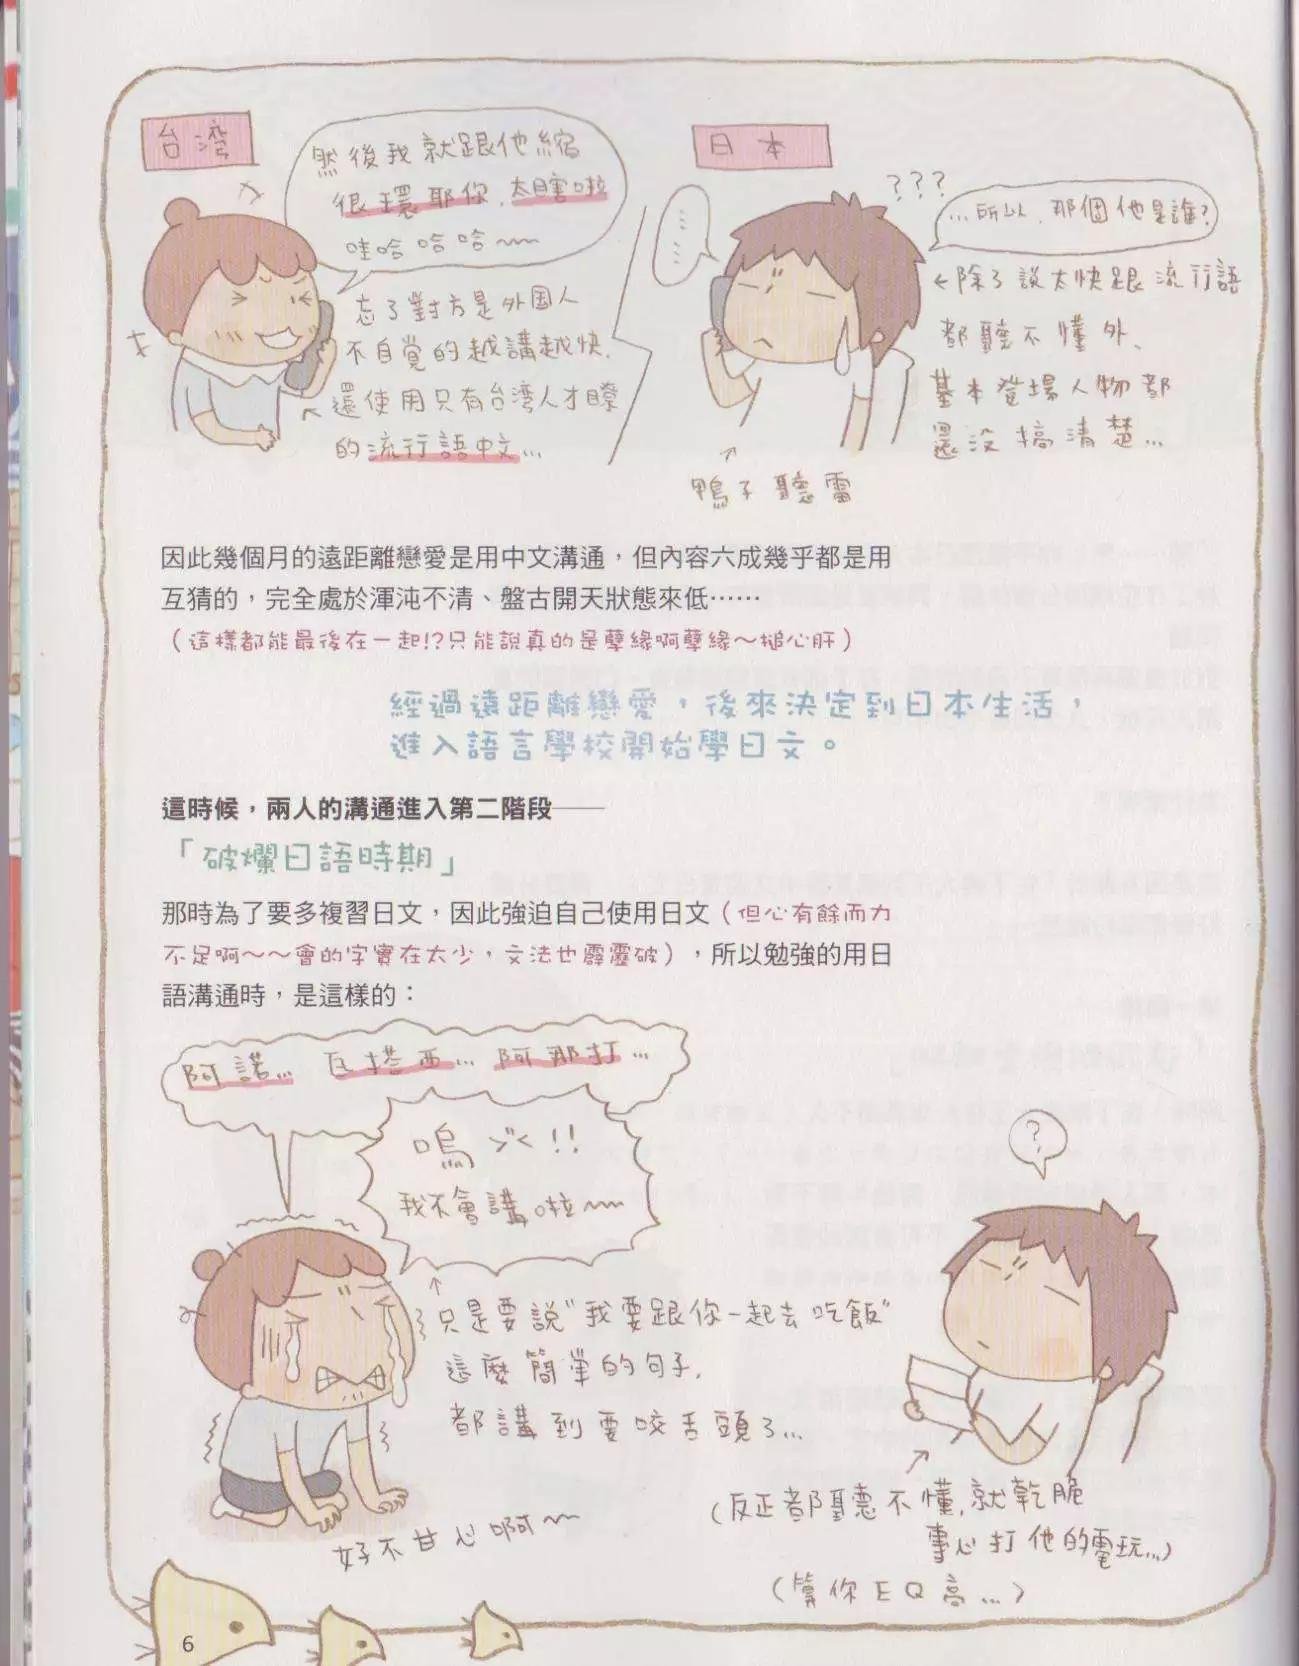 台灣
然後我就跟他縮
很環耶你，太瞎啦
哇哈哈哈~~
忘了對方是外国人
不自覚的越講越快，
還使用只有台湾人才瞭
的流行語中文...
日本
???
...所以，那個他是誰？
←除了說太快跟流行語
都聽不懂外、
基本登場人物都
還没搞清楚...
鴨子聽雷
因此幾個月的遠距離戀愛是用中文溝通，但內容六成幾乎都是用
互猜的，完全處於渾沌不清、盤古開天狀態來低⋯⋯
（這樣都能最後在一起!?只能說真的是孽緣啊孽緣～搥心肝）
經過遠距離戀愛，後來決定到日本生活，
進入語言學校開始學日文。
這時候，兩人的溝通進入第二階段——
「破爛日語時期」
那時為了要多複習日文，因此強迫自己使用日文（但心有餘而力
不足啊～～會的字實在太少，文法也霹靂破），所以勉強的用日
語溝通時，是這樣的：
阿諾... 瓦搭西... 阿那打...
嗚 !!
我不會講啦~~
只是要說"我要跟你一起去吃飯"
這麼簡單的句子，
都講到要咬舌頭了...
好不甘心啊~~
?
(反正都聽不懂，就乾脆
專心打他的電玩...)
(算你EQ高...)
6